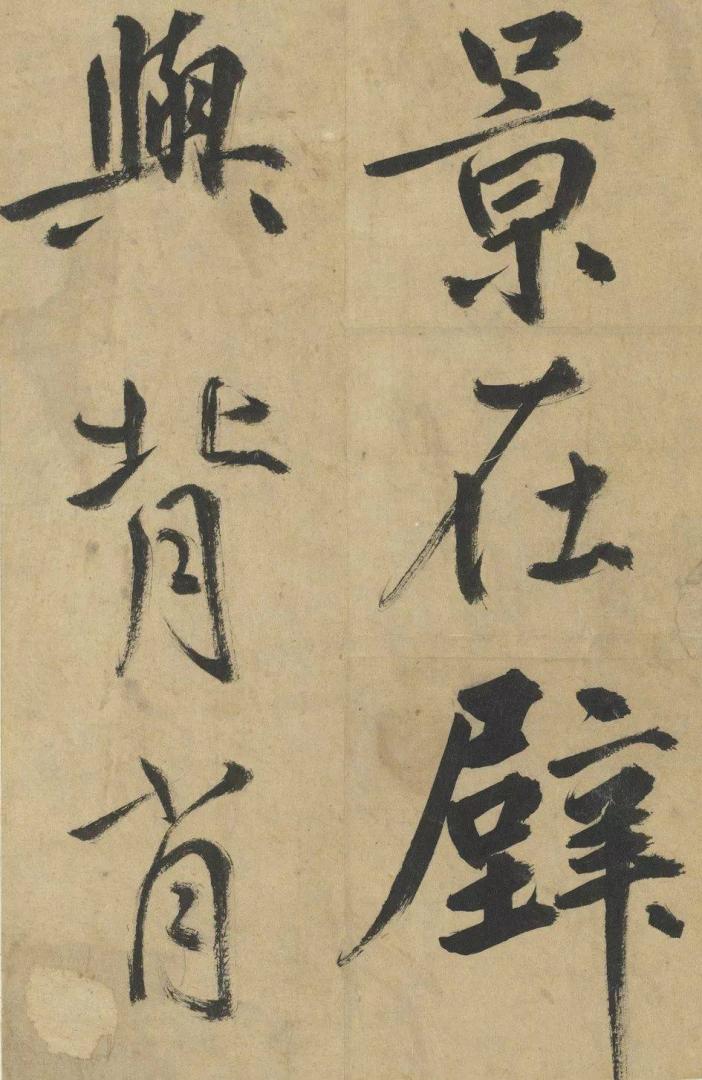 景在壁
與背肖